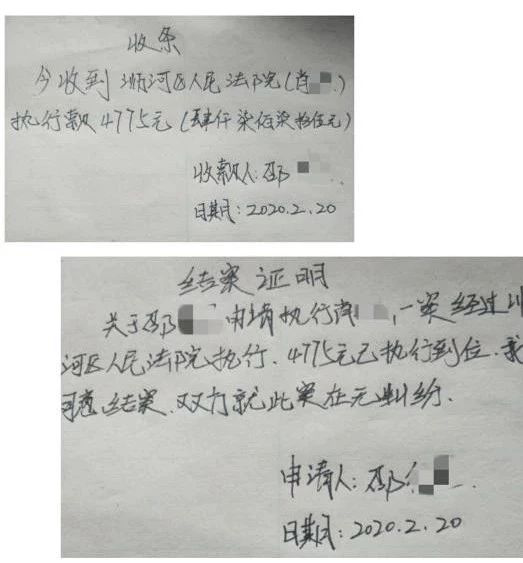 收条
今收到浉河区人民法院(肖)
执行款4775元(肆仟柒佰柒拾伍元)
收款人:邵
日期:2020.2.20
结案证明
关于邵 申请执行肖 ,一案经过
河区人民法院执行.4775元已执行到位.我
同意结案.双方就此案在无纠纷.
申请人:邵
日期:2020.2.20